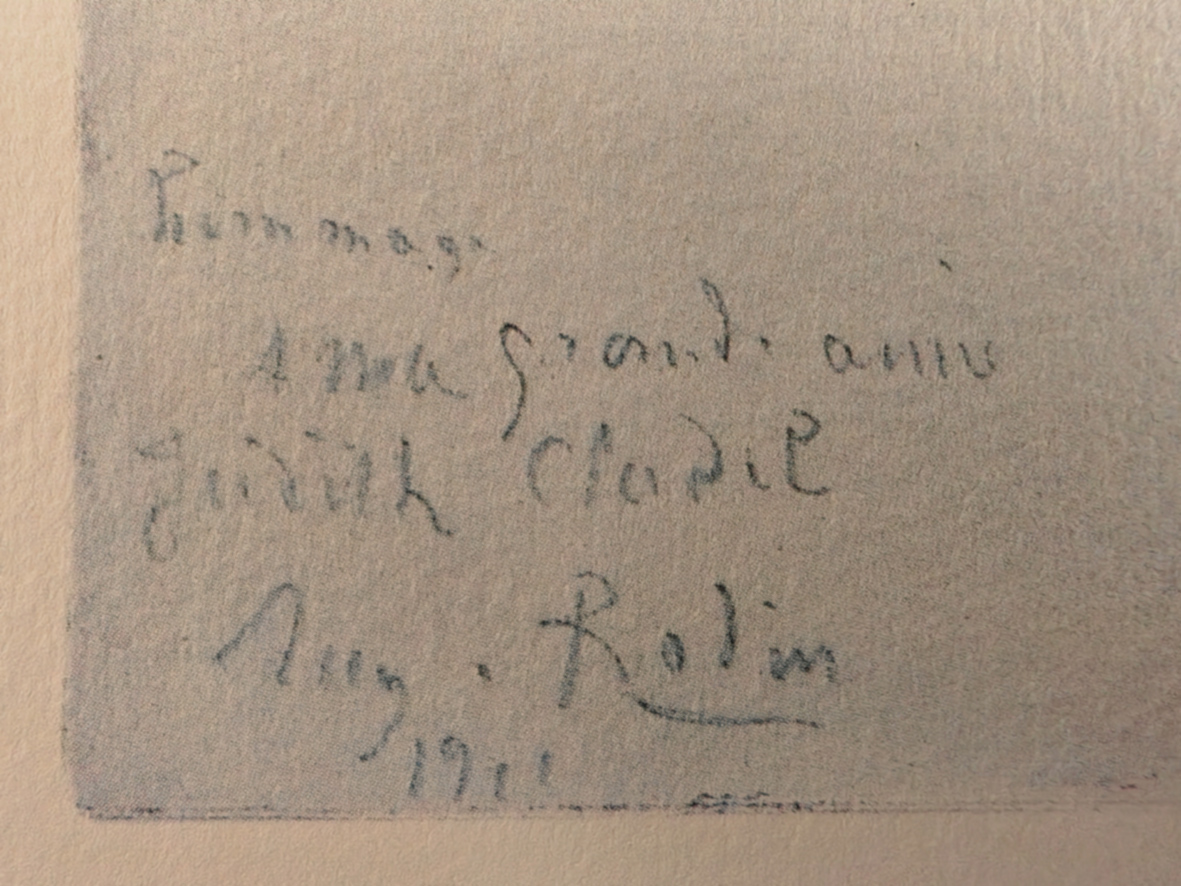 hommage
à ma grande amie
Judith Cladel
Aug. Rodin
1911